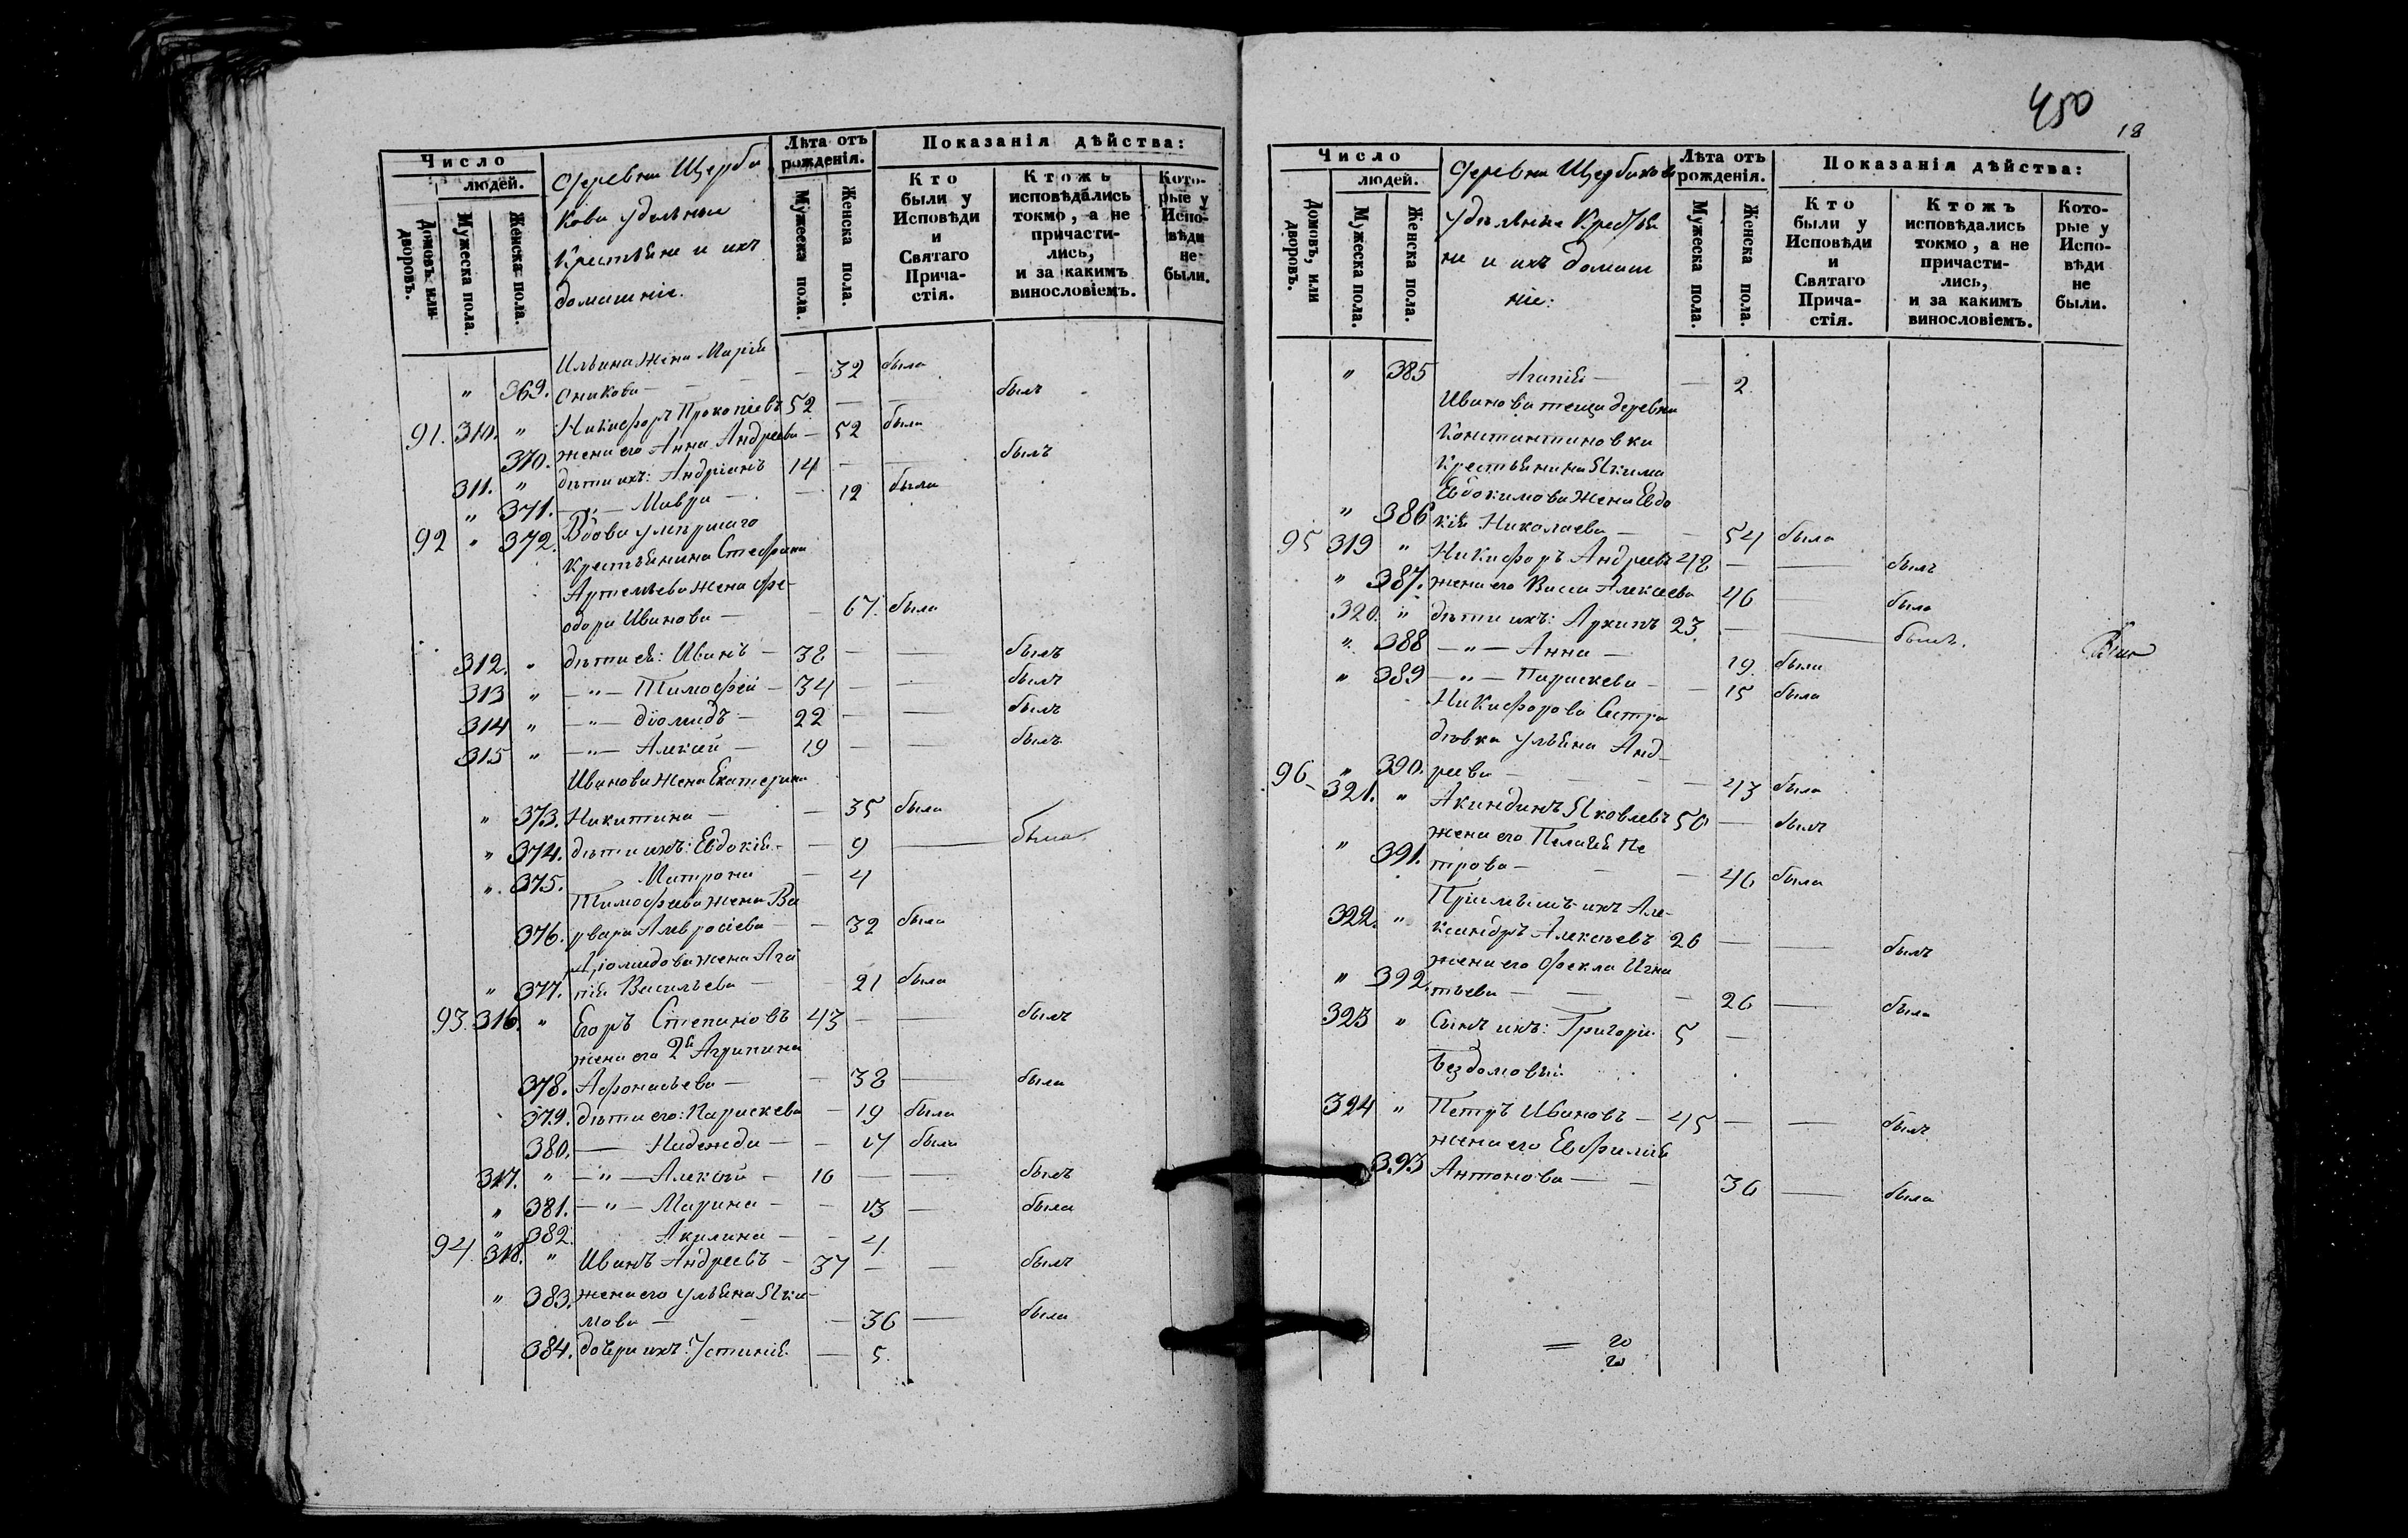 Число
людей.
Домовъ, или дворовъ.
Мужеска пола.
Женска пола.
Деревни Щерба
кова удельные
крестьяне и ихъ
домашніе.
Лѣта отъ рожденія.
Мужеска пола.
Женска пола.
Показанія дѣйства:
Кто были у Исповѣди и Святаго Прича-стія.
Ктожъ исповѣдались токмо, а не причасти-лись, и за какимъ винословіемъ.
Кото-рые у Испо-вѣди не были.
Ильина жена Марія
" 369. Оникова — — 32 была
91. 310. " Никифоръ Прокопіевъ 52 — — былъ
370. жена его Анна Андреева — 52 была
311. " дѣти ихъ: Андріанъ 14 — — былъ
" 371. — " — Мавра — — 12 была
92 " 372. Вдова умершаго
крестьянина Стефана
Артемьева жена Фе-
одора Иванова — — 67. была
312. " дѣти ея: Иванъ — 38 — — былъ
313 " — " — Тимофей — 34 — — былъ
314 " — " — Діомидъ — 22 — — былъ
315 " — " — Алексей — 19 — — былъ
Иванова жена Екатерина
" 373. Никитина — — 35 была
" 374. дѣти ихъ: Евдокія — — 9 — была
" 375. Матрона — 4
Тимофеева жена Ва
376. рвара Амвросіева — — 32 была
Діомидова жена Ага
" 377. пія Васильева — — 21 была
93. 316. " Егоръ Степановъ 43 — — былъ
жена его 2я Агрипина
378. Афонасьева — — 38 — была
379. дѣти его: Параскева — 19 была
380. — Надежда — — 17 была
317. " — " — Алексей — 16 — — былъ
" 381. — " — Марина — — 13 — была
" 382. Акулина — — 4.
94. 318. " Иванъ Андреевъ — 37 — — былъ
" 383. жена его Ульяна Яки-
мова — — — 36 — была
384. дочери ихъ: Устинія — 5.
450
18
Число
людей.
Домовъ, или дворовъ.
Мужеска пола.
Женска пола.
Деревни Щербаковы
удельные крестья
не и ихъ домаш
ніе:
Лѣта отъ рожденія.
Мужеска пола.
Женска пола.
Показанія дѣйства:
Кто были у Исповѣди и Святаго Прича-стія.
Ктожъ исповѣдались токмо, а не причасти-лись, и за какимъ винословіемъ.
Кото-рые у Испо-вѣди не были.
" 385 Агапія — — 2
Иванова теща деревни
Константиновки
крестьянина Якима
Евдокимова жена Евдо
" 386 кія Николаева — — 54 была
95 319 " Никифоръ Андреевъ 48 — — былъ
" 387. жена его Васса Алексеева 46 — была
320. " дѣти ихъ: Архипъ 23. — — былъ.
" 388 — " — Анна — 19. была
" 389 — " — Параскева — — 15 была
Никифорова сестра
дѣвка Ульяна Анд-
" 390. реева — — — 43 была
96 321. " Акиндинъ Яковлевъ 50 — былъ
жена его Пелагія Пе
" 391. трова — — — 46 была
Пріемышъ ихъ Але-
322. " ксандръ Алексѣевъ 26 — — былъ
жена его Фекла Игна
" 392. тьева — — — 26 — была
323 " Сынъ ихъ: Григорій 5 —
Бездомовый
324 " Петръ Ивановъ — 45 — — былъ
жена его Евфимія
393 Антонова — — 36 — была